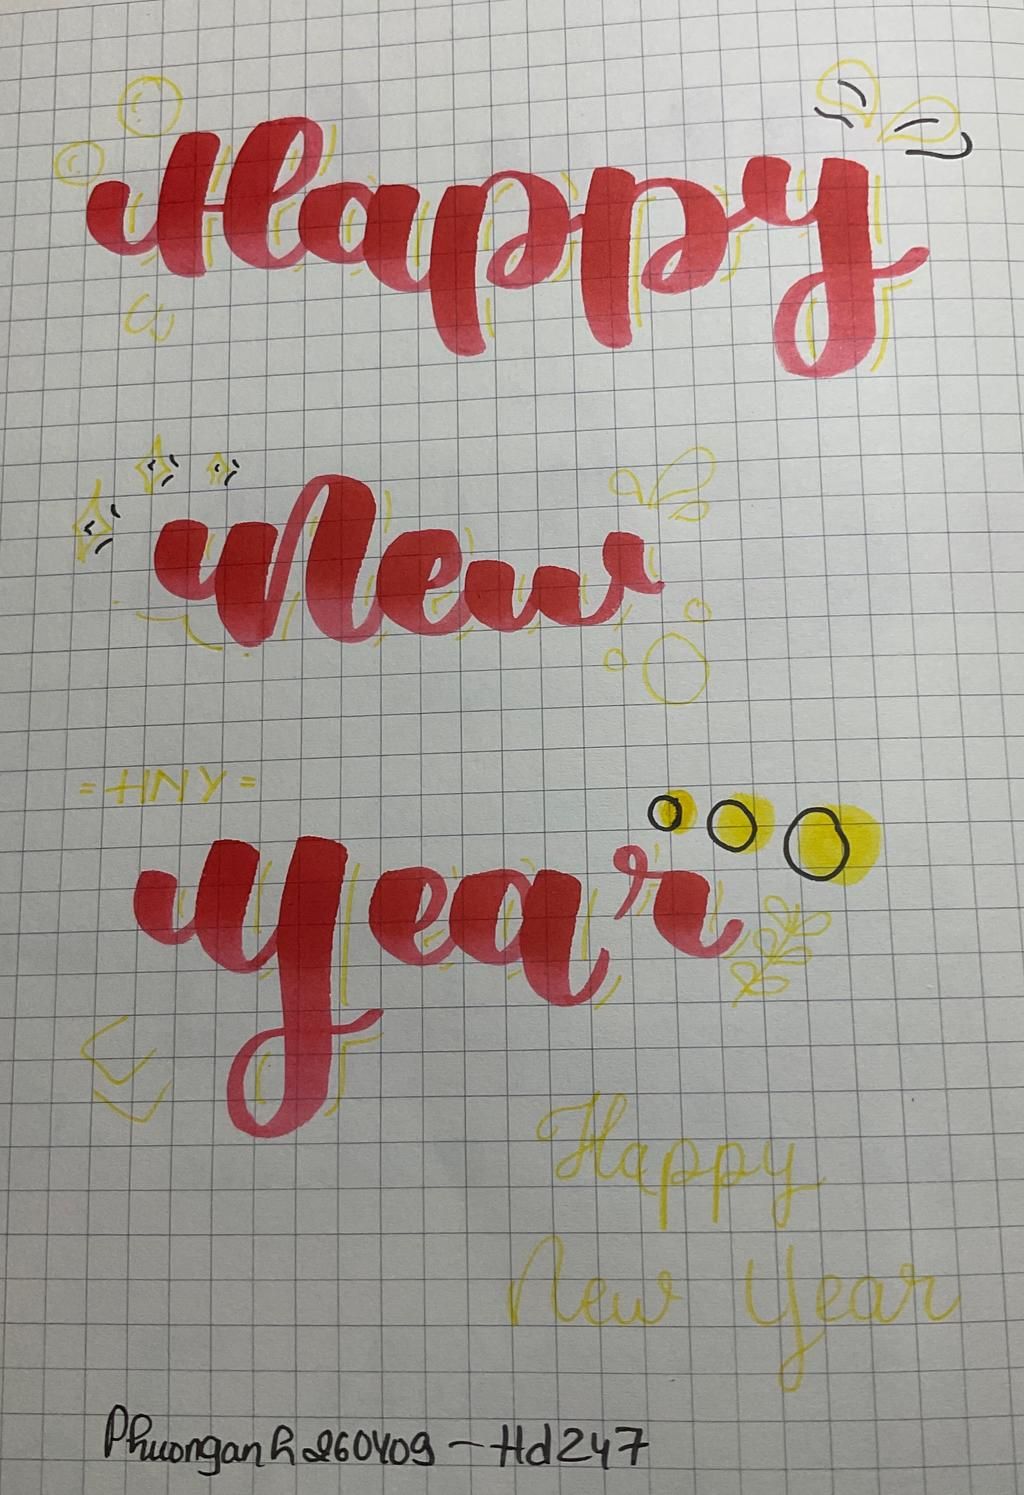 Happy
New
= HNY =
Year
Happy
New Year
Phuonganh260409 – Hd247